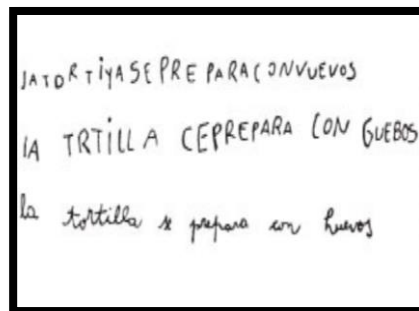 lATORTiYASEPREPARACONVUEVOS
lA TRTiLLA CEPREPARA CON GUEBOS
la tortilla se prepara con huevos